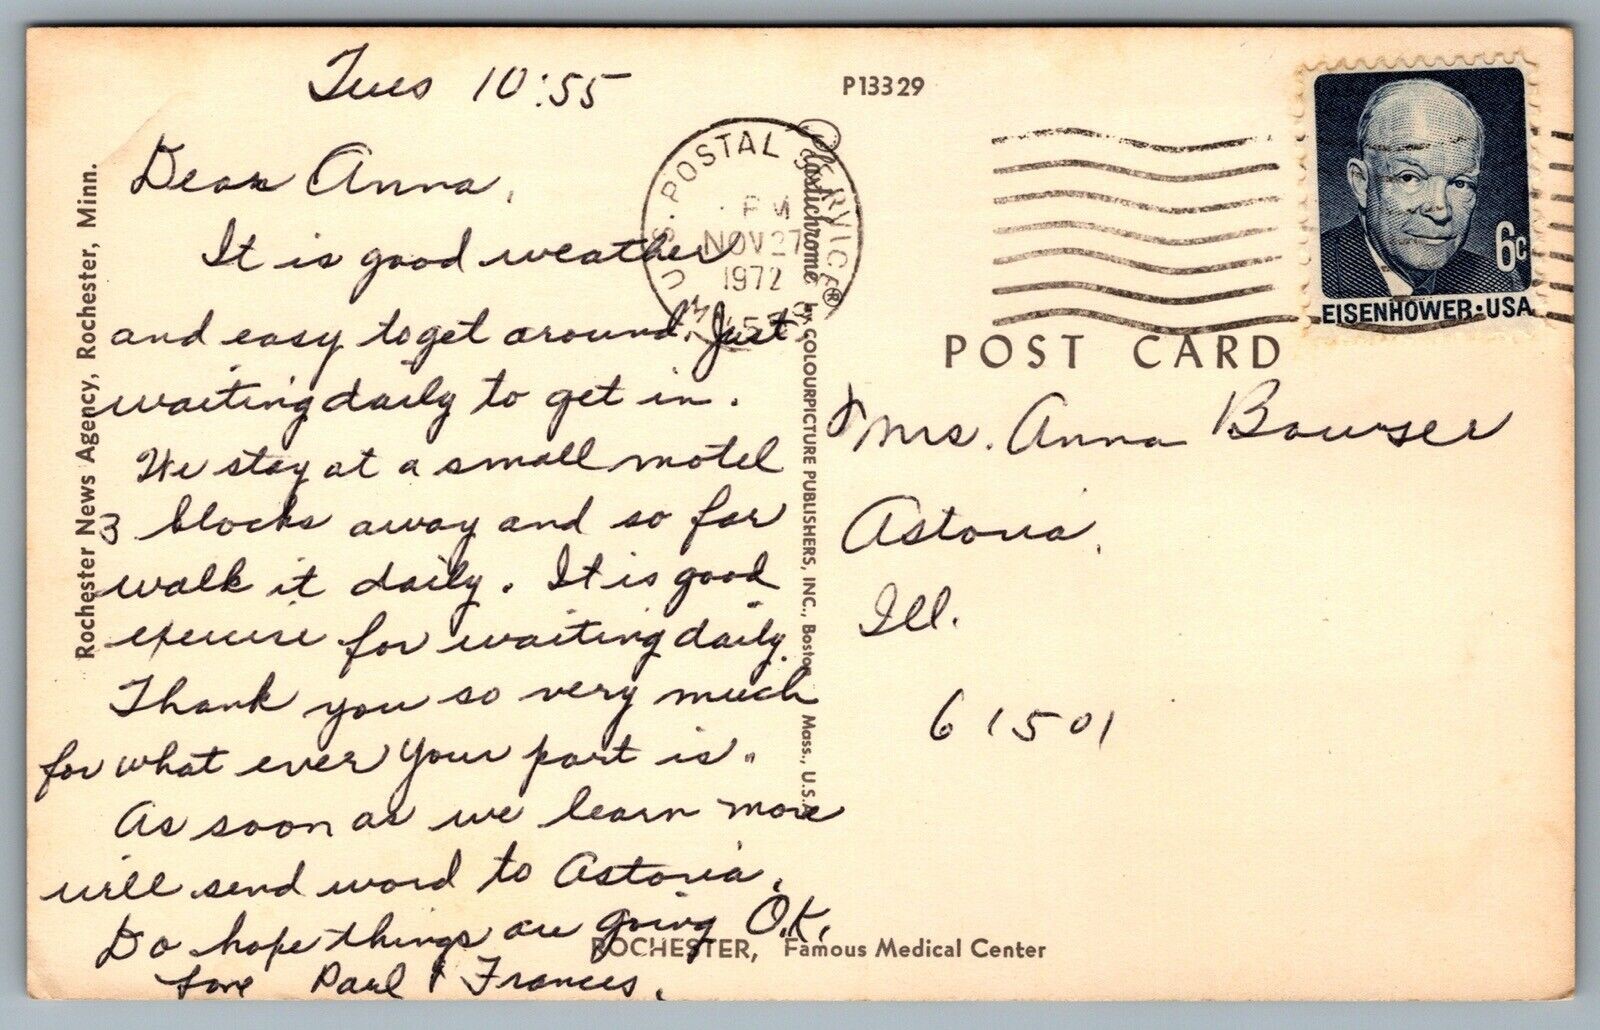 Tues 10:55
Dear Anna,
It is good weather
and easy to get around. Just
waiting daily to get in.
We stay at a small motel
3 blocks away and so far
walk it daily. It is good
exercise for waiting daily.
Thank you so very much
for what ever your part is.
As soon as we learn more
will send word to Astoria.
Do hope things are going O.K.
Love Paul & Frances.
Rochester News Agency, Rochester, Minn.
P13329
U.S. POSTAL SERVICE
PM
NOV 27
1972
Plastichrome® by COLOURPICTURE PUBLISHERS, INC., Boston, Mass., U.S.A.
6c
EISENHOWER·USA
POST CARD
Mrs. Anna Bowser
Astoria,
Ill.
61501
ROCHESTER, Famous Medical Center